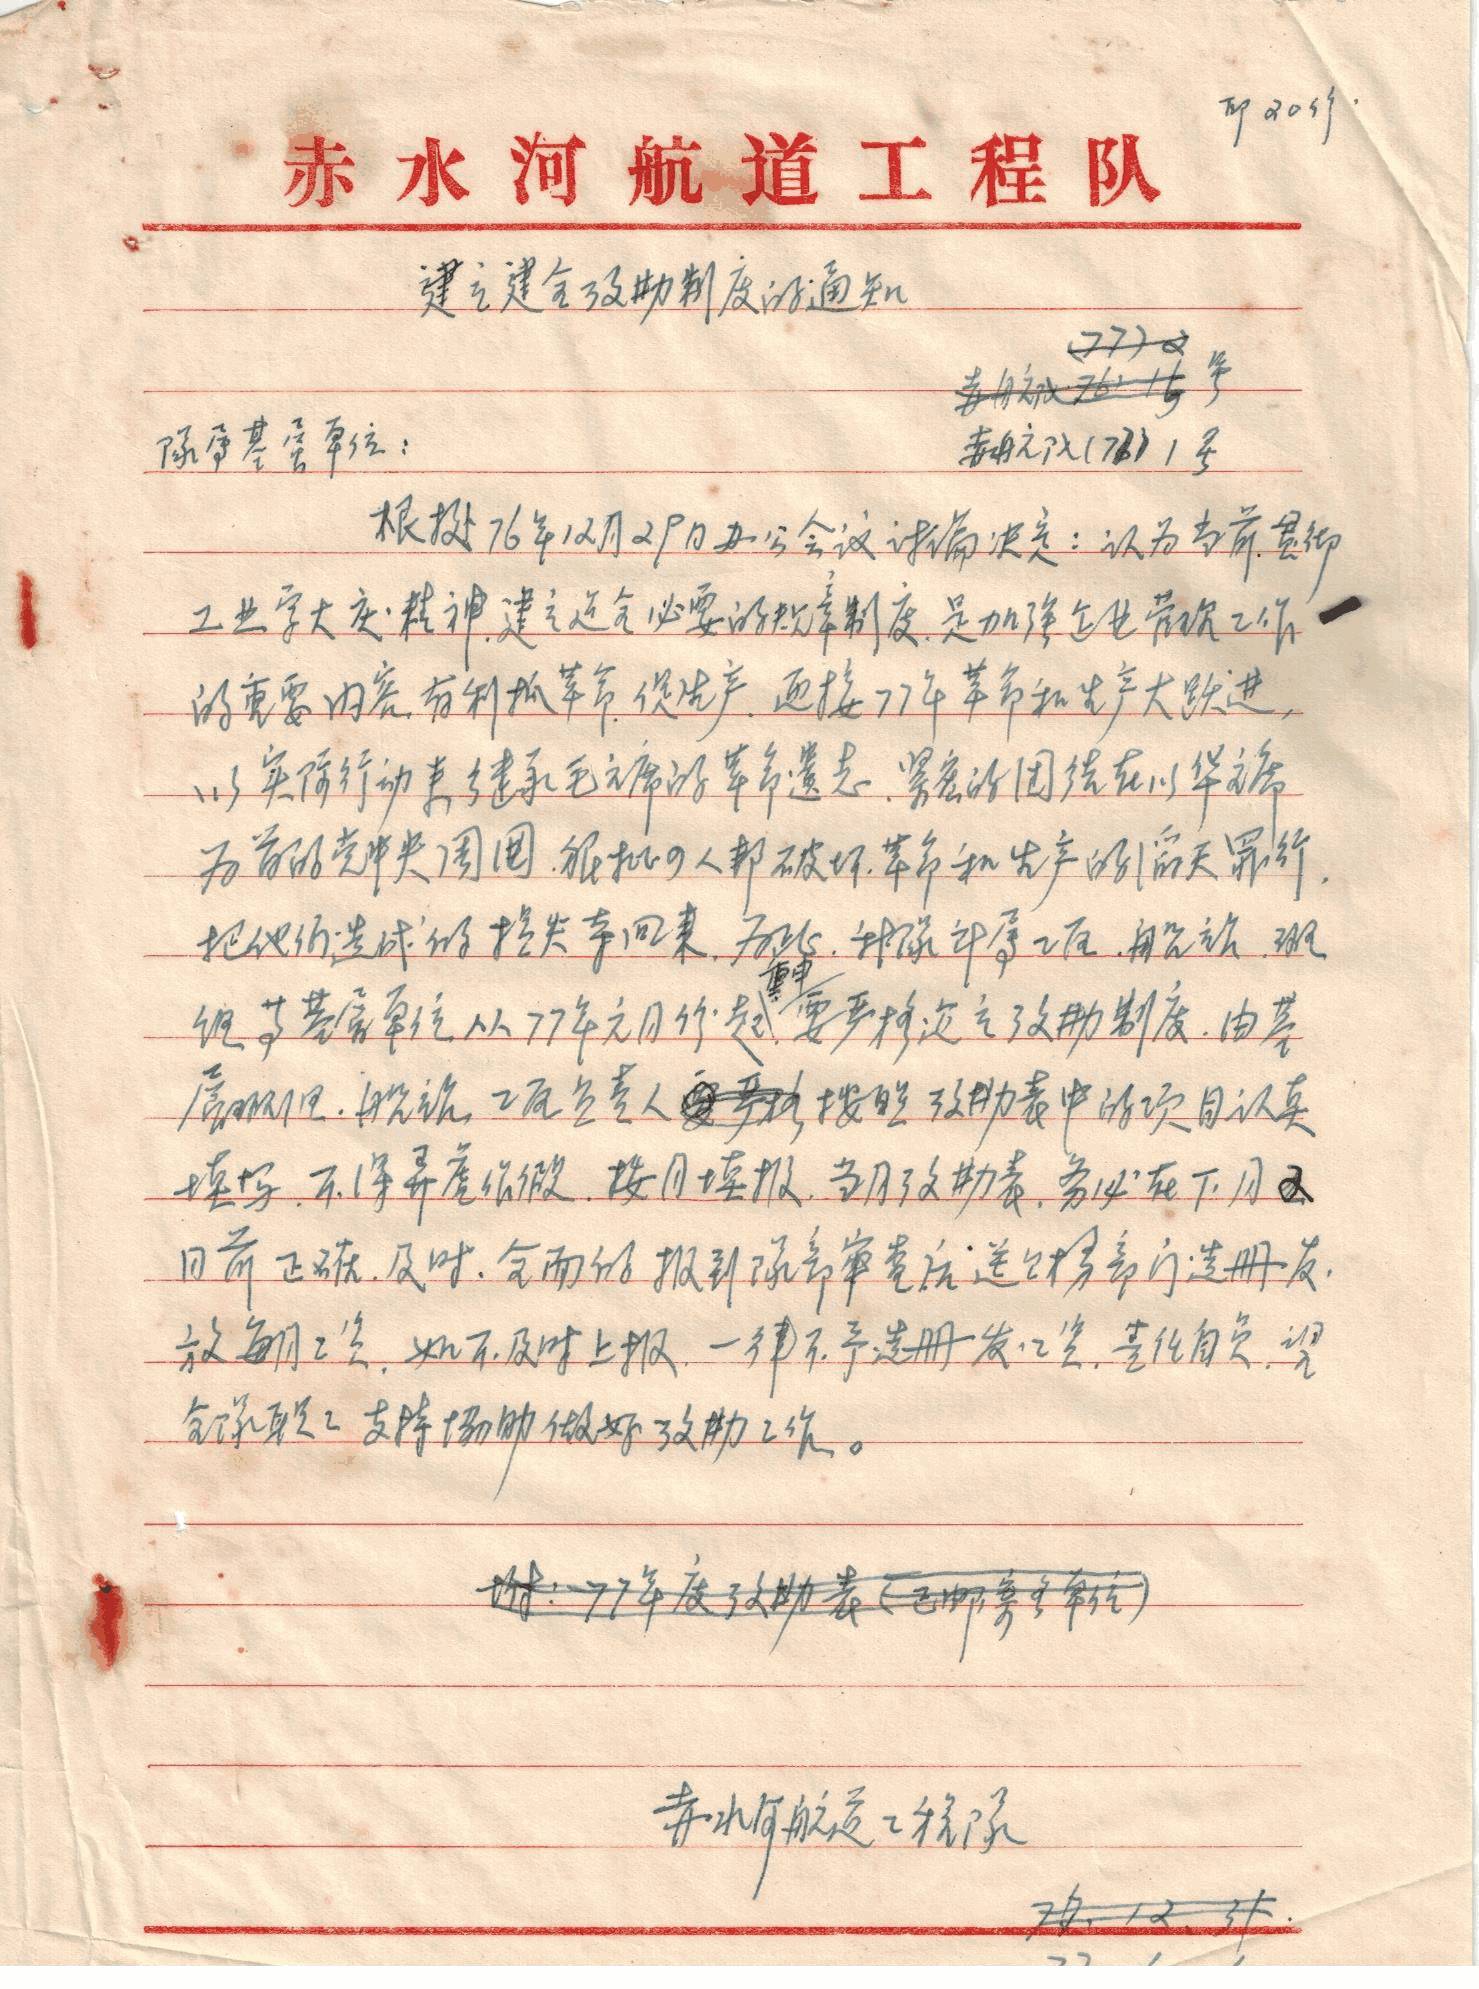 印20份.
赤水河航道工程队
建立建全考勤制度的通知
(77)2
赤航队76.15号
赤航队(77)1号
队属基层单位：
根据76年12月29日办公会议讨论决定：认为当前贯彻
工业学大庆精神、建立建全必要的规章制度、是加强企业管理工作
的重要内容、有利抓革命、促生产、迎接77年革命和生产大跃进，
以实际行动来继承毛主席的革命遗志、紧密的团结在以华主席
为首的党中央周围、狠批四人邦破坏革命和生产的滔天罪行，
把他们造成的损失夺回来、为此、我队所属工区、船站、班
重申
组等基层单位从77年元月份起、要严格建立考勤制度、由基
层班组、船站、工区负责人要严格按照考勤表中的项目认真
填写、不得弄虚作假、按月填报、当月考勤表、务必在下月2
日前正确、及时、全面的报到队部审查后送财务部门造册发
放每月工资、如不及时上报、一律不予造册发工资、责任自负、望
全队职工支持协助做好考勤工作。
附：77年度考勤表（已邮寄各单位）
赤水河航道工程队
76.12.31.